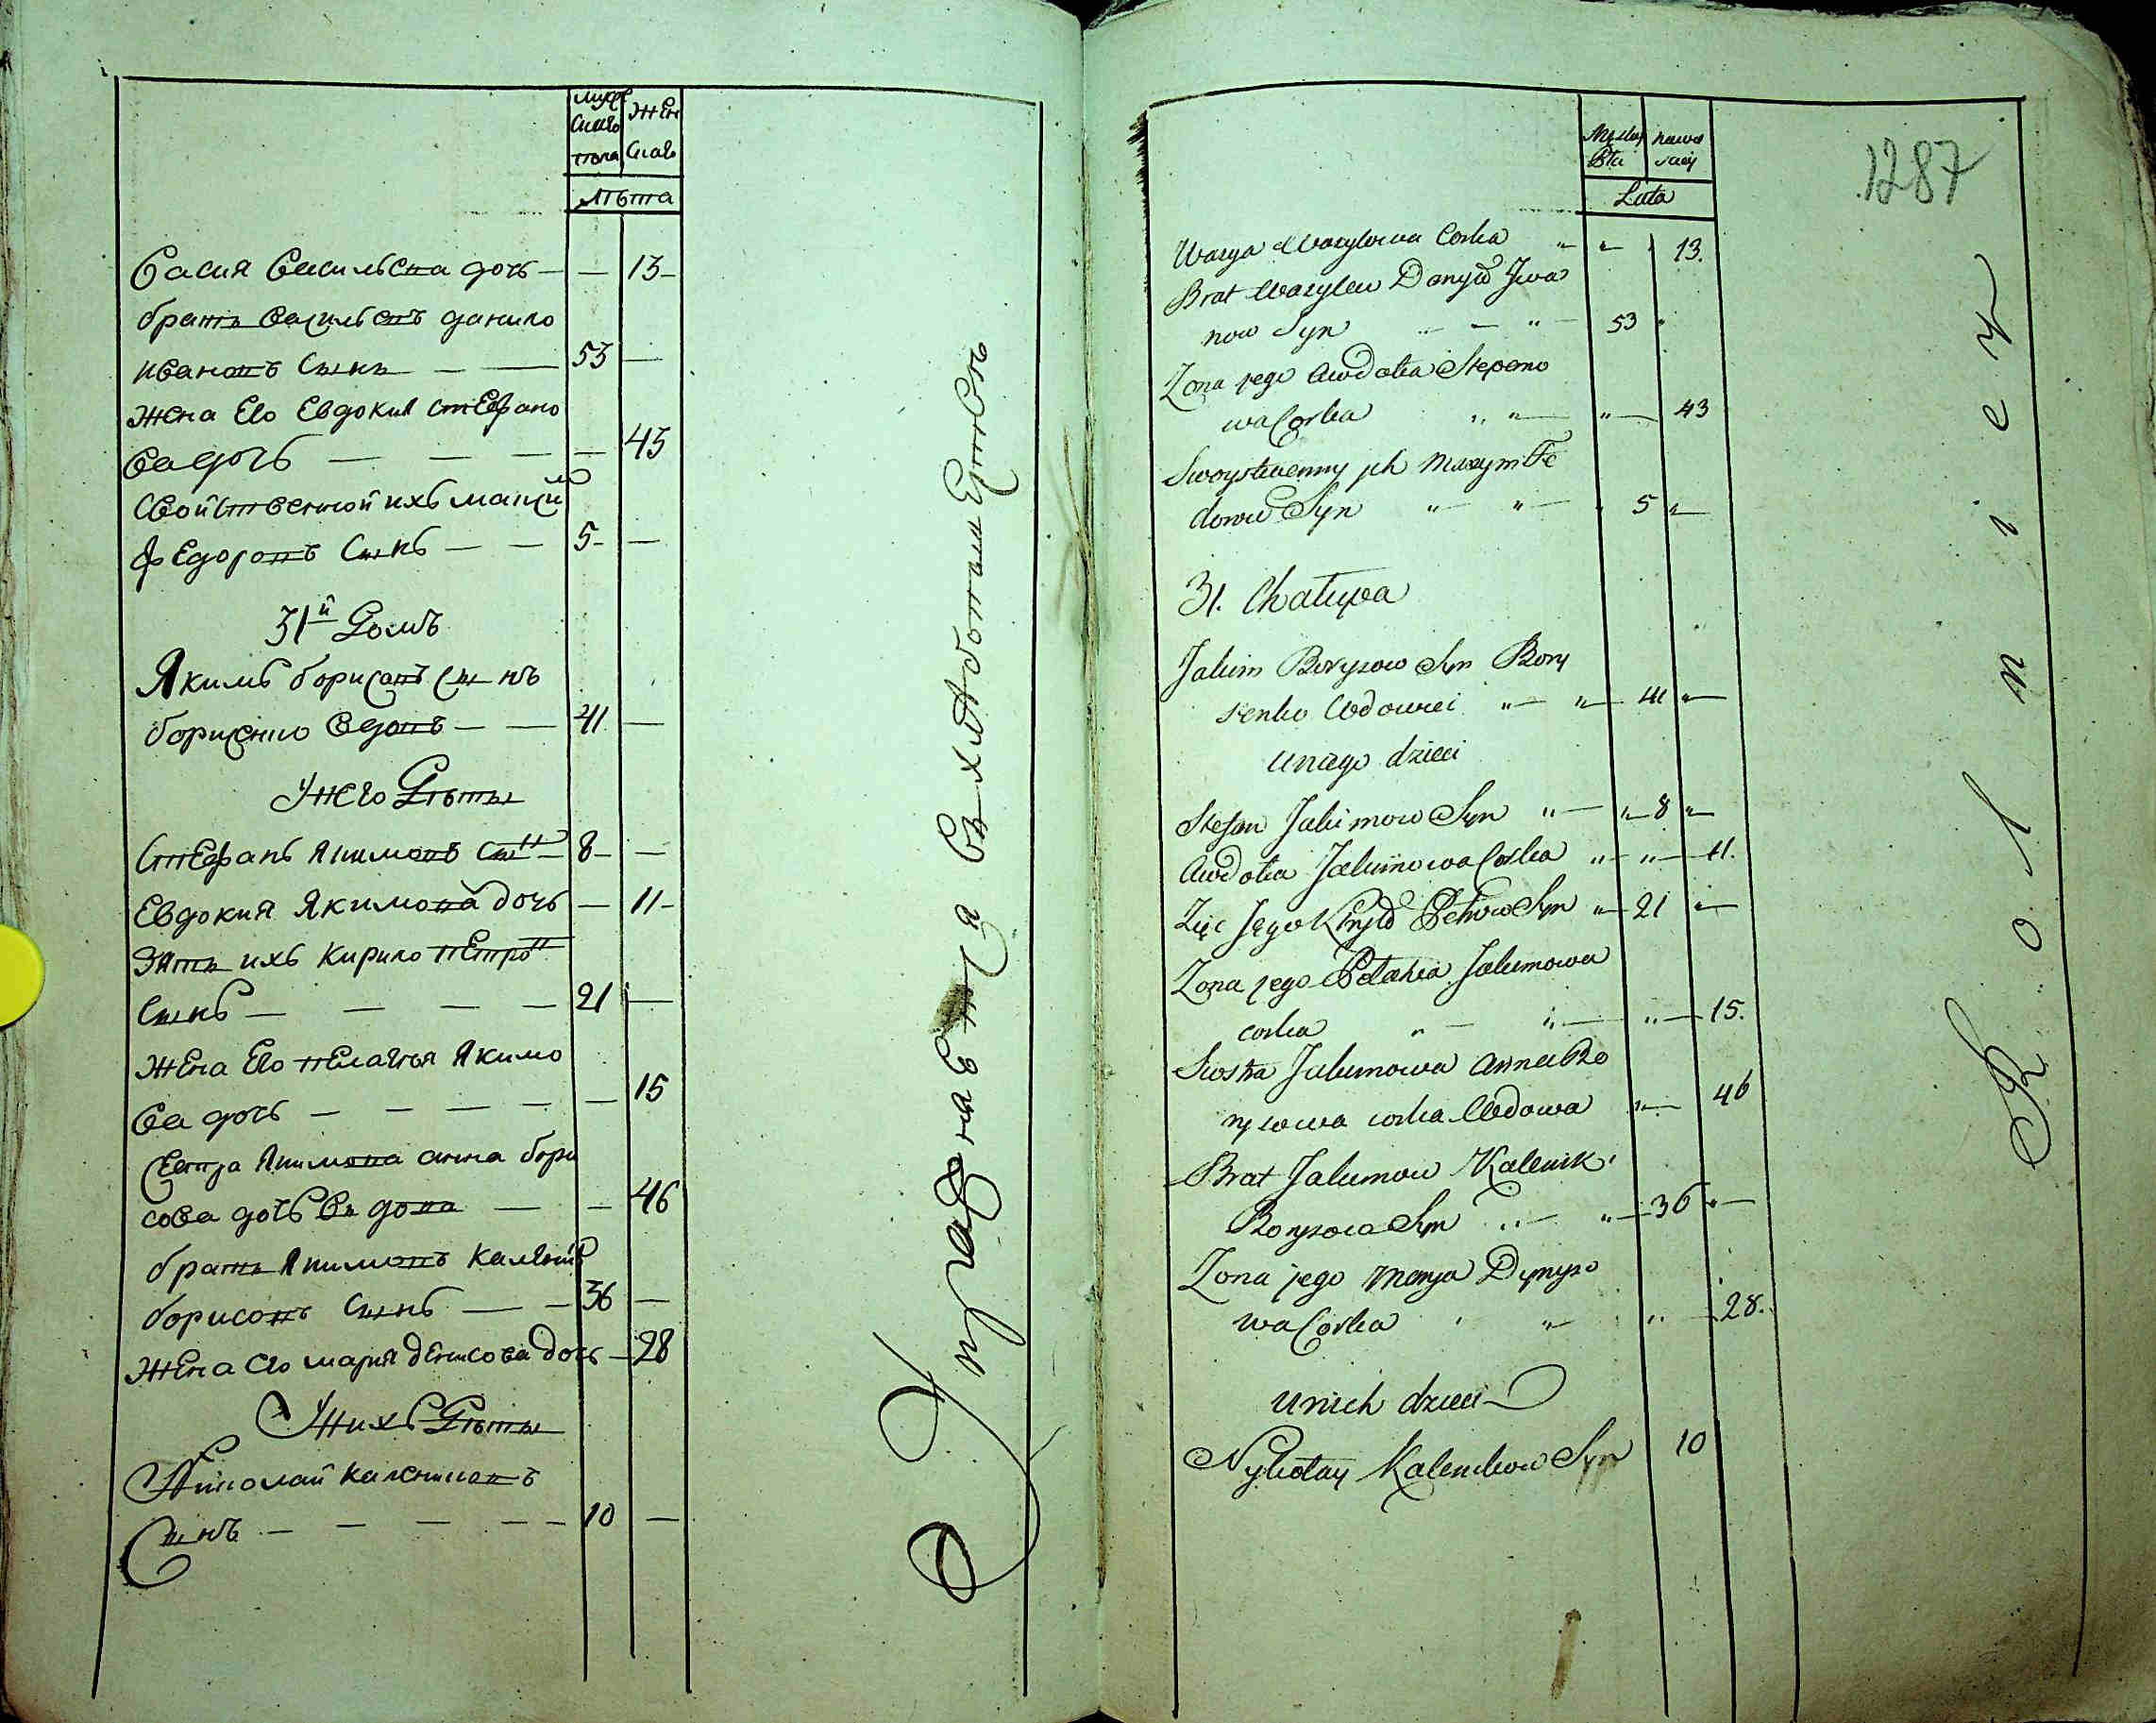 мужс
Жен
скаго
пола
скаго
лѣта
Васия Васильева дочь — — 13 —
братъ Васильевъ данило
ивановъ сынъ — — 53 —
жена Его Евдокия стефано
ва дочь — — — — 43
свойственной ихъ максим
федоровъ сынъ — — 5 — —
31й Домъ
Якимъ борисовъ сынъ
борисенко вдовъ — — 41 —
У него Дѣты
Стефанъ Якимовъ сын — 8 — —
Евдокия Якимова дочь — 11 —
Зять ихъ Кирило петров
сынъ — — — — 21 —
жена Его пелагия Якимо
ва дочь — — — — — 15
сестра Якимова анна бори
сова дочь вдова — — 46
братъ Якимовъ каленик
борисовъ сынъ — — 36 —
жена Его мария денисова дочь — 28
У нихъ Дѣты
Николай калениковъ
сынъ — — — — — 10 —
Упражняется въ хлѣбопашествѣ
1287
Męsky
Płci
Lata
Wasya Wasylowa Corka " " 13.
Brat Wasylew Danyło Iwa
now Syn — " — 53 "
Zona jego Awdotia Stepano
wa Corka " " — " — 43
Swoystwenny ich Maxym Fe
dorow Syn " — " — " 5 " —
31. Chałupa
Jakim Borysow Syn Bory
senko Wdowiec " — " — 41 " —
u niego dzieci
Stefan Jakimow Syn " — " — 8 " —
Awdotia Jakimowa Corka " — " — 11.
Zięc Jego Kiryło Petrow Syn " — 21 " —
Zona jego Pelahia Jakimowa
corka " — " — " — 15.
Siostra Jakimowa Anna Bo
rysowa corka Wdowa " — 46
Brat Jakimow Kalenik
Borysow Syn " — " — 36 " —
Zona jego Marya Dynyso
wa Corka " " " — 28.
u nich dzieci
Nykołay Kalenikow Syn 10
Rolnicy